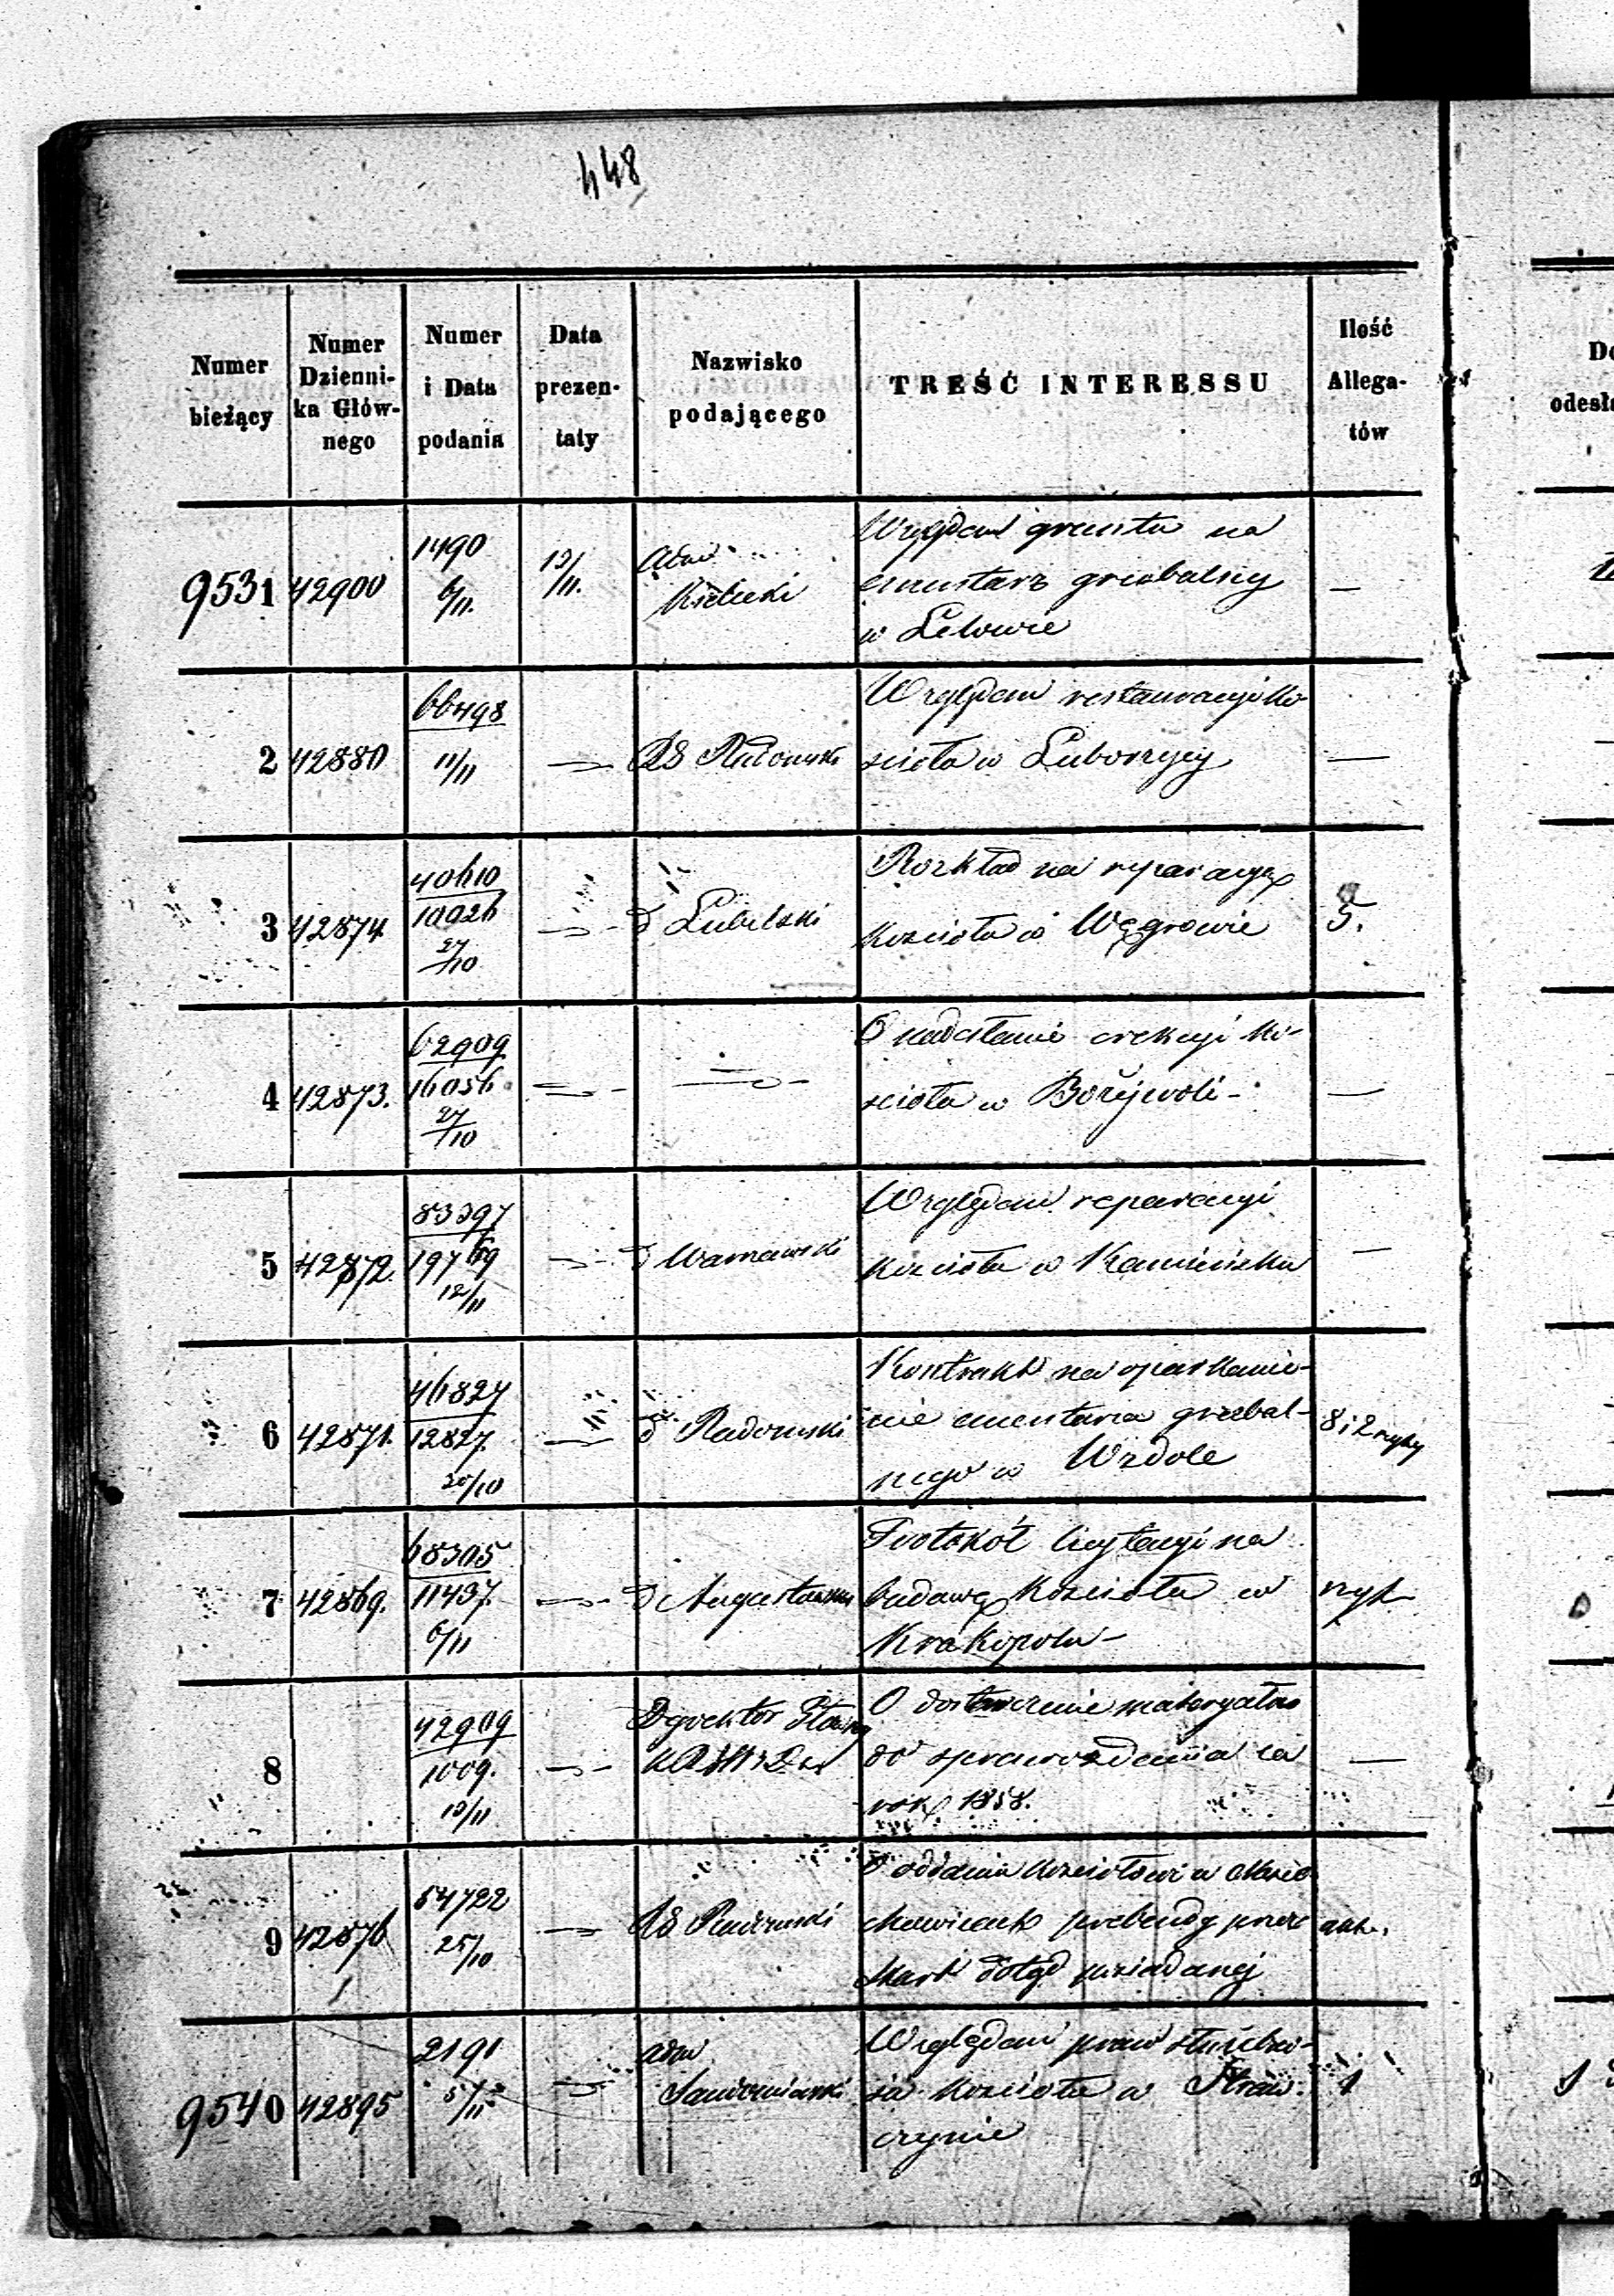 448
Numer bieżący
Numer Dzienni- ka Głów- nego
Numer i Data podania
Data prezen- taty
Nazwisko podającego
TREŚĆ INTERESSU
Ilość Allega- tów
9531 42900 1490 6/11. 13/11. Adm Kielecki
Względem gruntu na
cmentarz grzebalny
w Lelowie
—
2 42880 66498 11/11 — RG Radomski
Względem restauracyi ko-
ścioła w Luborzycy
—
3 42874 40610 10026 27/10 — d Lubelski
Rozkład na reparacyę
kościoła w Węgrowie
5.
4 42873. 62909 16056 27/10 — —
O nadesłanie erekcyi ko-
ścioła w Bożejwoli -
—
5 42872. 83397 19769 12/11 — d Warszawski
Względem reparacyi
kościoła w Kamieńsku
—
6 42871. 46827 12827. 20/10 — d Radomski
Kontrakt na oparkanie-
nie cmentarza grzebal-
nego w Wzdole
8 i 2 ryсy
7 42869. 68305 11437. 6/11 — d Augustowski
Protokół licytacyi na
budowę kościoła w
Krakopolu -
rys
8 42909 1009. 13/11 — Dyrektor
O dostarczenie materyałów
do sprawozdania za
rok 1858.
—
9 42876 54722 25/10 — RG Radomski
O oddania kościołowi w
prebendy przez
skarb dotąd posiadanej
akt.
9540 42895 2191 5/11 — adm Sandomierski
Względem praw służebno-
ści kościoła w Straw-
czynie
1